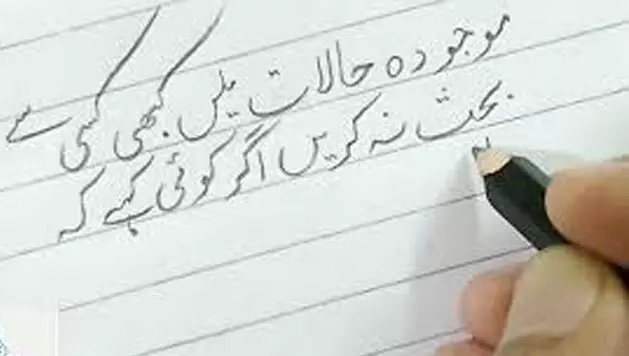 موجودہ حالات میں کبھی کسی سے
بحث نہ کریں اگر کوئی کہے کہ